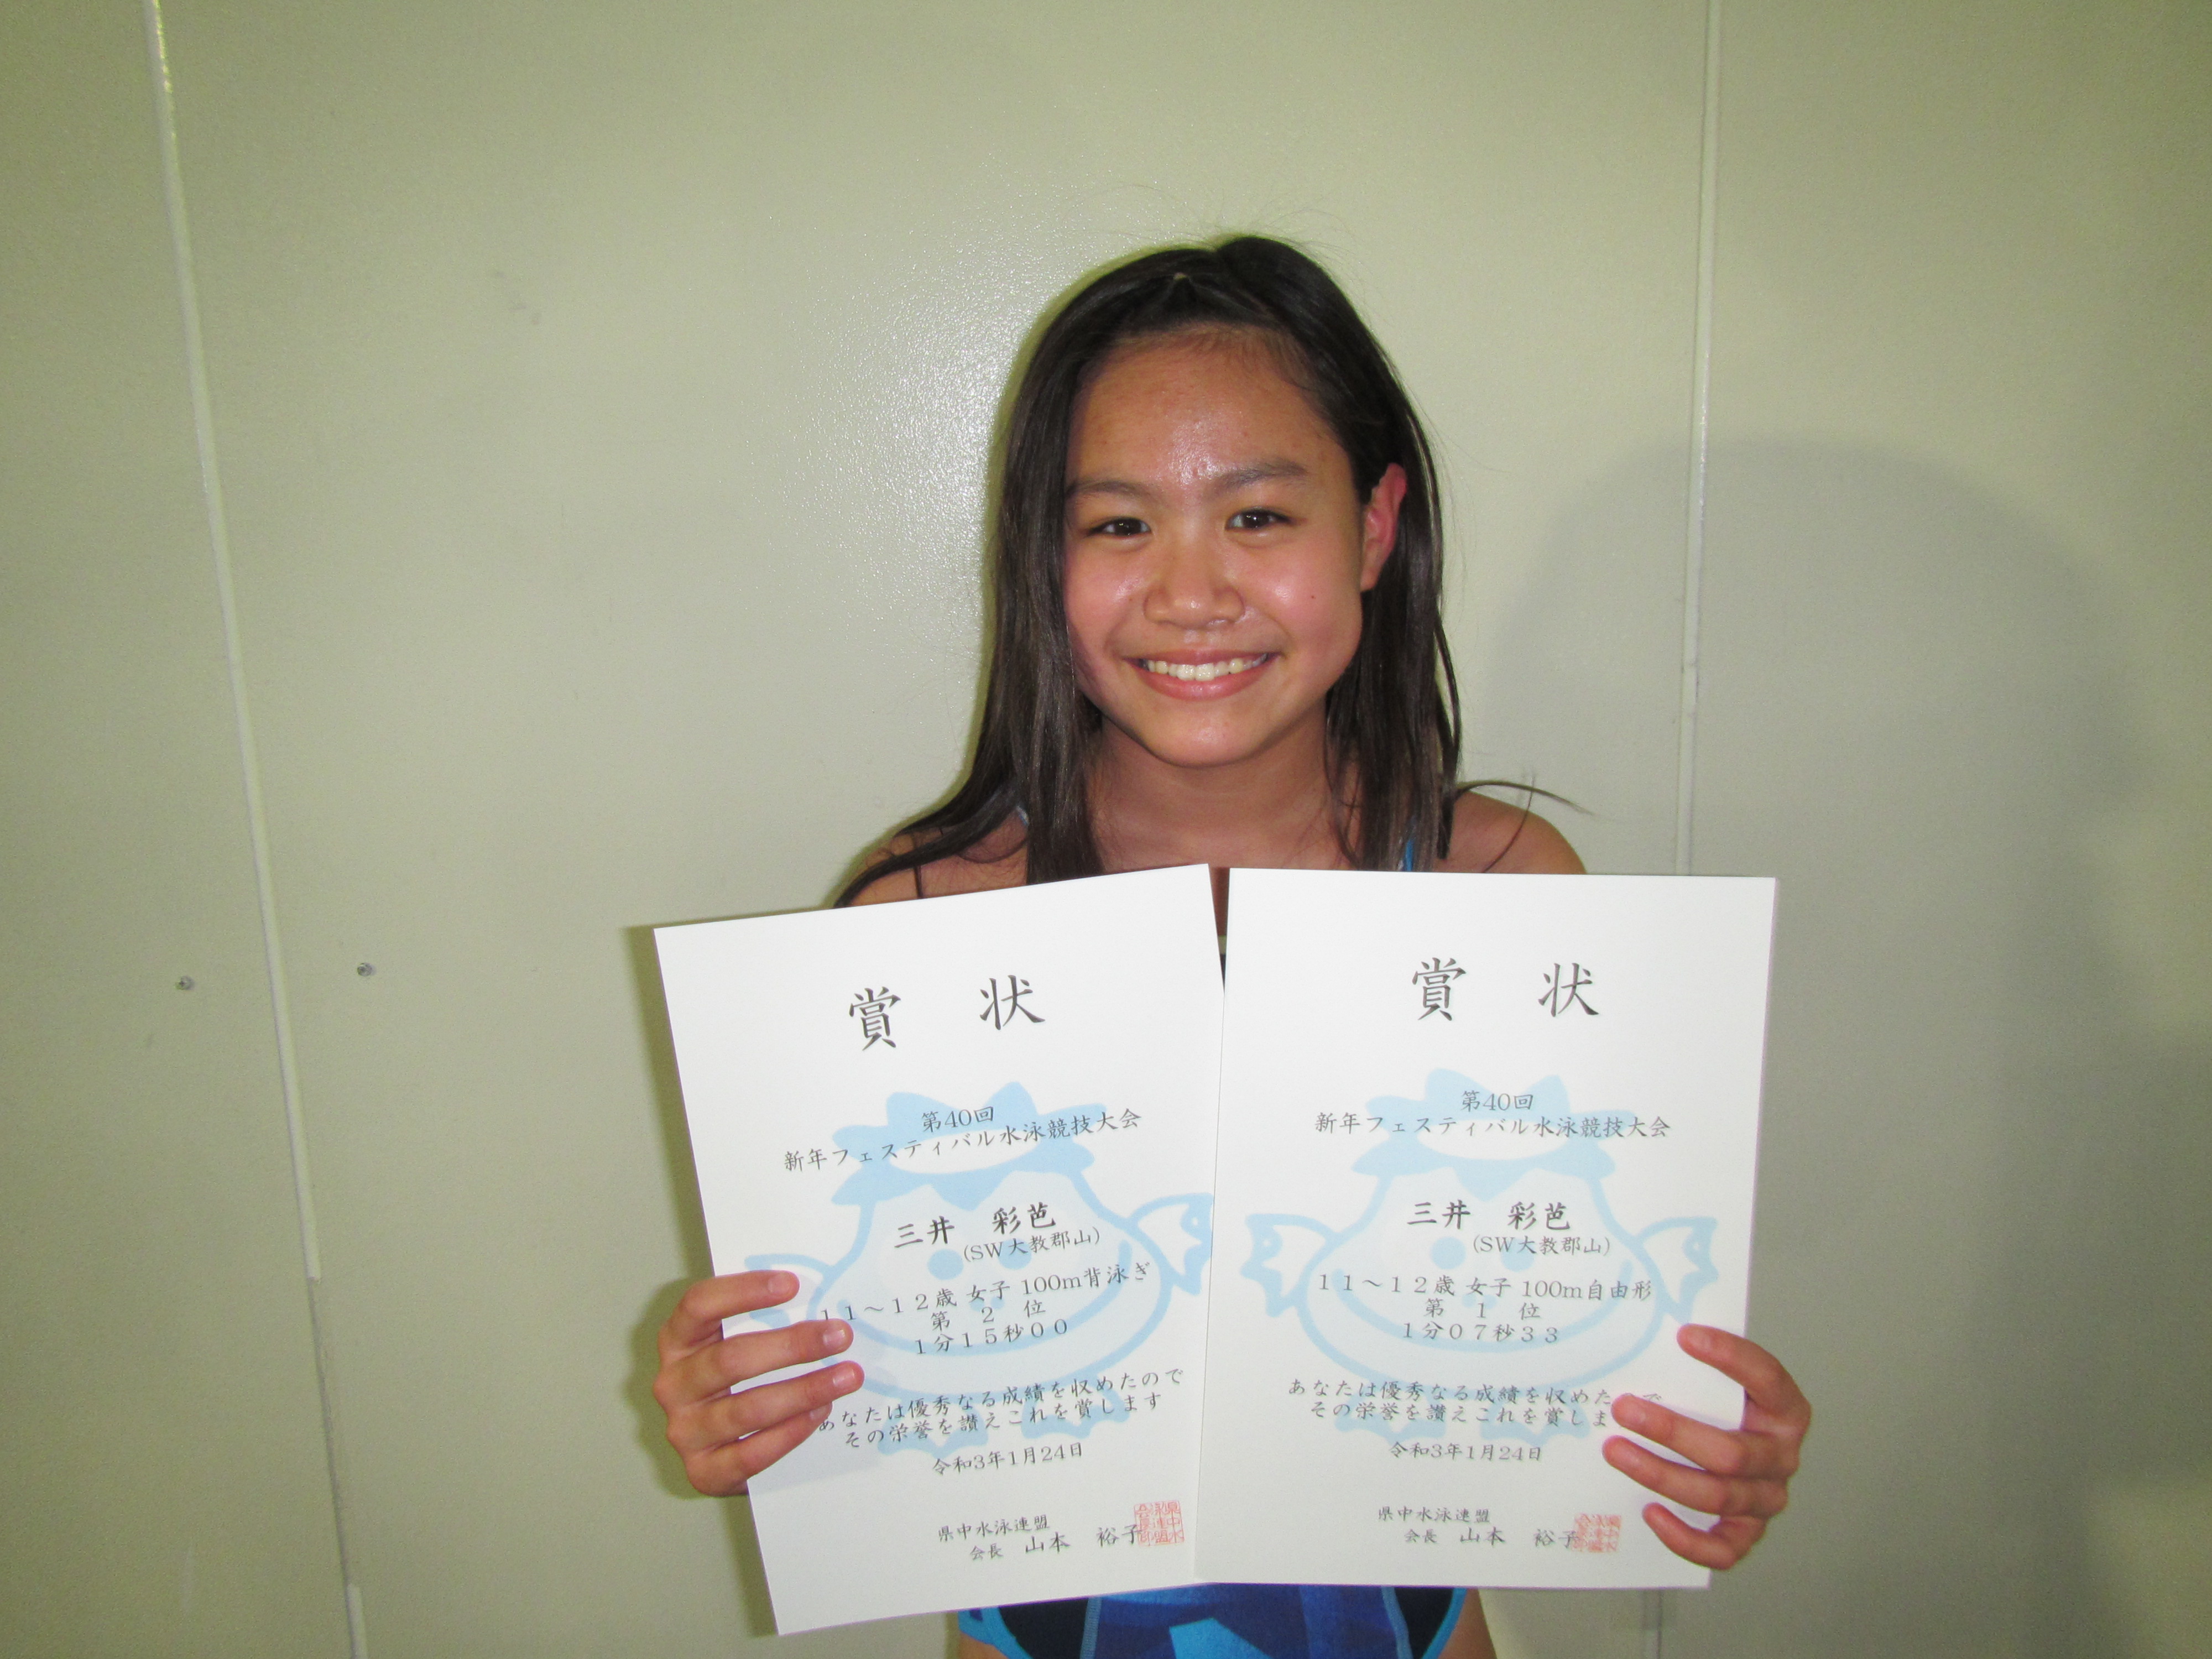 賞 状
第40回
新年フェスティバル水泳競技大会
三井 彩芭
(SW大教郡山)
11～12歳 女子 100m背泳ぎ
第 2 位
1分15秒00
あなたは優秀なる成績を収めたので
その栄誉を讃えこれを賞します
令和3年1月24日
県中水泳連盟
会長 山本 裕子
賞 状
第40回
新年フェスティバル水泳競技大会
三井 彩芭
(SW大教郡山)
11～12歳 女子 100m自由形
第 1 位
1分07秒33
あなたは優秀なる成績を収めた で
その栄誉を讃えこれを賞しま
令和3年1月24日
県中水泳連盟
会長 山本 裕子